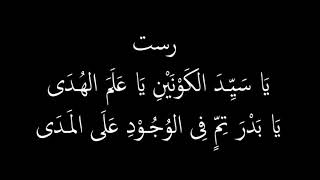 رست
يَا سَيِّدَ الكَوْنَيْنِ يَا عَلَمَ الهُدَى
يَا بَدْرَ تِمٍّ فِى الوُجُوْدِ عَلَى المَدَى